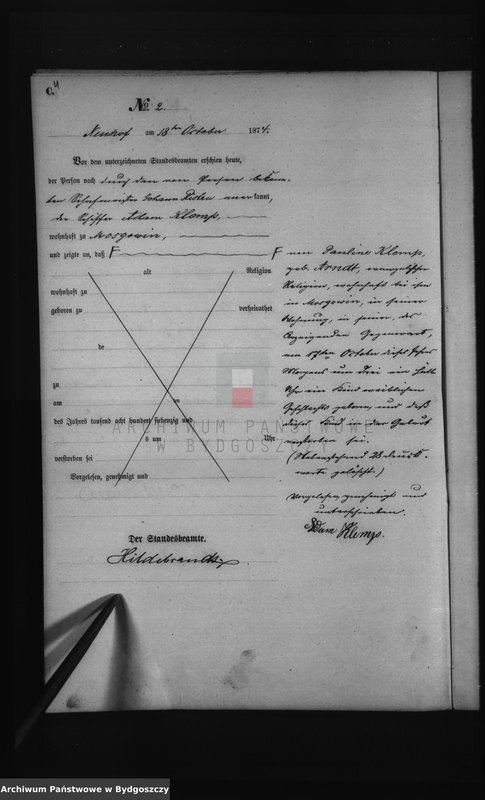 C. 4
No. 2.
Neuhof am 18ten October 1874.
Vor dem unterzeichneten Standesbeamten erschien heute,
der Person nach durch den von Person bekann-
ten Schulmeister Johann anerkannt,
der Schiffer Adam Klemp,
wohnhaft zu Mosgowin,
und zeigte an, daß F
alt Religion
wohnhaft zu
geboren zu verheirathet
de
zu
am
des Jahres tausend acht hundert siebenzig und
s um Uhr
verstorben sei
Vorgelesen, genehmigt und
F von Pauline Klemp,
geb. Arndt, evangelischer
Religion, wohnhaft bei ihm
in Mosgowin, in seiner
Wohnung, in seiner des
Anzeigenden Gegenwart,
am 17ten October dieses Jahres
Morgens um drei ein halb
Uhr ein Kind weiblichen
Geschlechts geboren und daß
dieses Kind in der Geburt
verstorben sei.
(Nebenstehend 23 Druck-
worte gelöscht.)
Vorgelesen, genehmigt und
unterschrieben.
Adam Klemp.
Der Standesbeamte.
Hildebrandt
ARCHIWUM PAŃSTWOWE
W BYDGOSZCZY
Archiwum Państwowe w Bydgoszczy